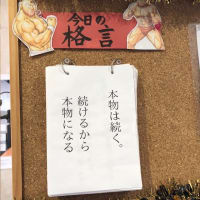 今日の
格言
本物は続く。
続けるから
本物になる